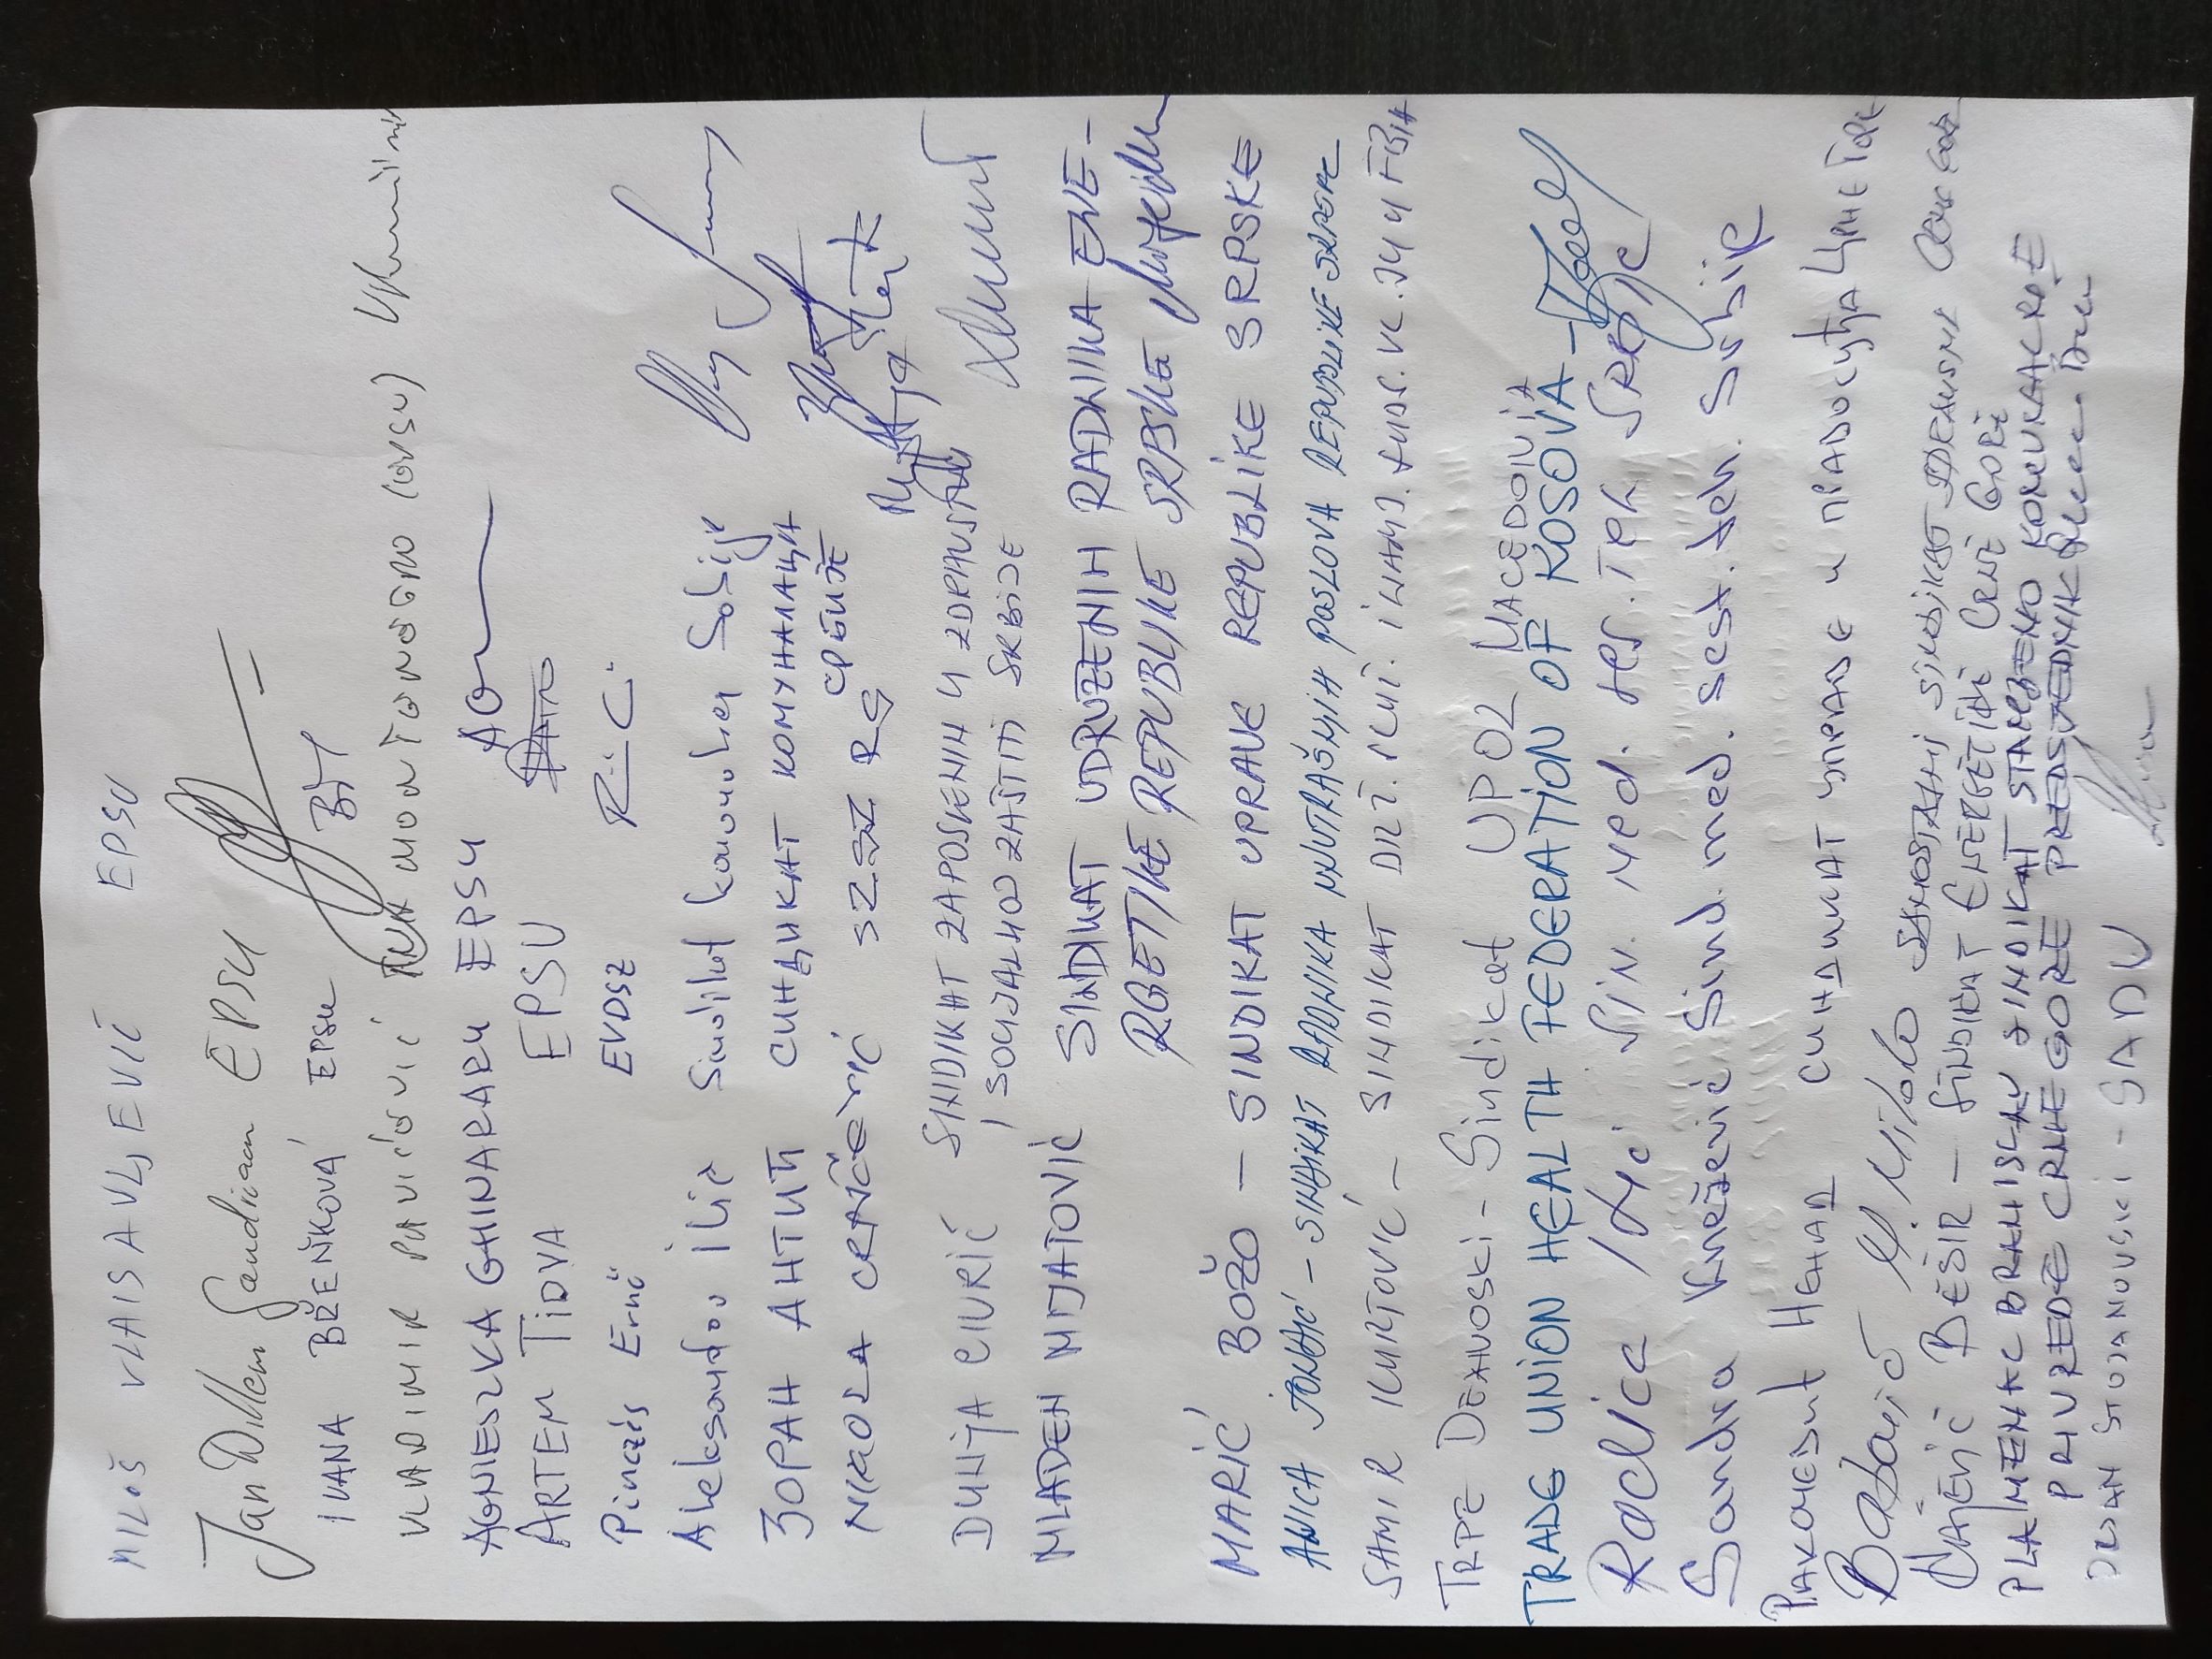 MILOŠ VLAISAVLJEVIĆ EPSU
Jan Willem Goudriaan EPSU
IVANA BŘEŇKOVÁ EPSU
VLADIMIR PAVIĆEVIĆ MONTENEGRO
AGNIESZKA GHINARARU EPSU
ARTEM TIDVA EPSU
Pinczés Ernő EVDSZ
Aleksandar Ilić Sindikat komunalaca Srbije
ЗОРАН АНТИЋ СИНДИКАТ КОМУНАЛАЦА СРБИЈЕ
NIKOLA
DUNJA CIVRIĆ SINDIKAT ZAPOSLENIH U ZDRAVSTVU
I SOCIJALNOJ ZAŠTITI SRBIJE
MLADEN MIJATOVIĆ SINDIKAT UDRUŽENIH RADNIKA ENE-
RGETIKE REPUBLIKE SRPSKE
MARIĆ BOŽO – SINDIKAT UPRAVE REPUBLIKE SRPSKE
ANICA – SINDIKAT RADNIKA UNUTRAŠNJIH POSLOVA REPUBLIKE SRPSKE
SAMIR KURTOVIĆ – SINDIKAT
TRPE DEANOSKI - Sindicat UPOZ MACEDONIA
TRADE UNION HEALTH FEDERATION OF KOSOVA –
Radica Ilić Sin. med. ses. Teh Srbije
Sandra Knežević Sind. med. sest. teh. Srbije
СИНДИКАТ УПРАВЕ И ПРАВОСУЂА ЦРНЕ ГОРЕ
BEŠIR – SINDIKAT ENERGETIKE CRNE GORE
PLAMENAC BRANISLAV SINDIKAT STAMBENO KOMUNALNE
PRIVREDE CRNE GORE PREDSJEDNIK
STOJANOVSKI - SADU